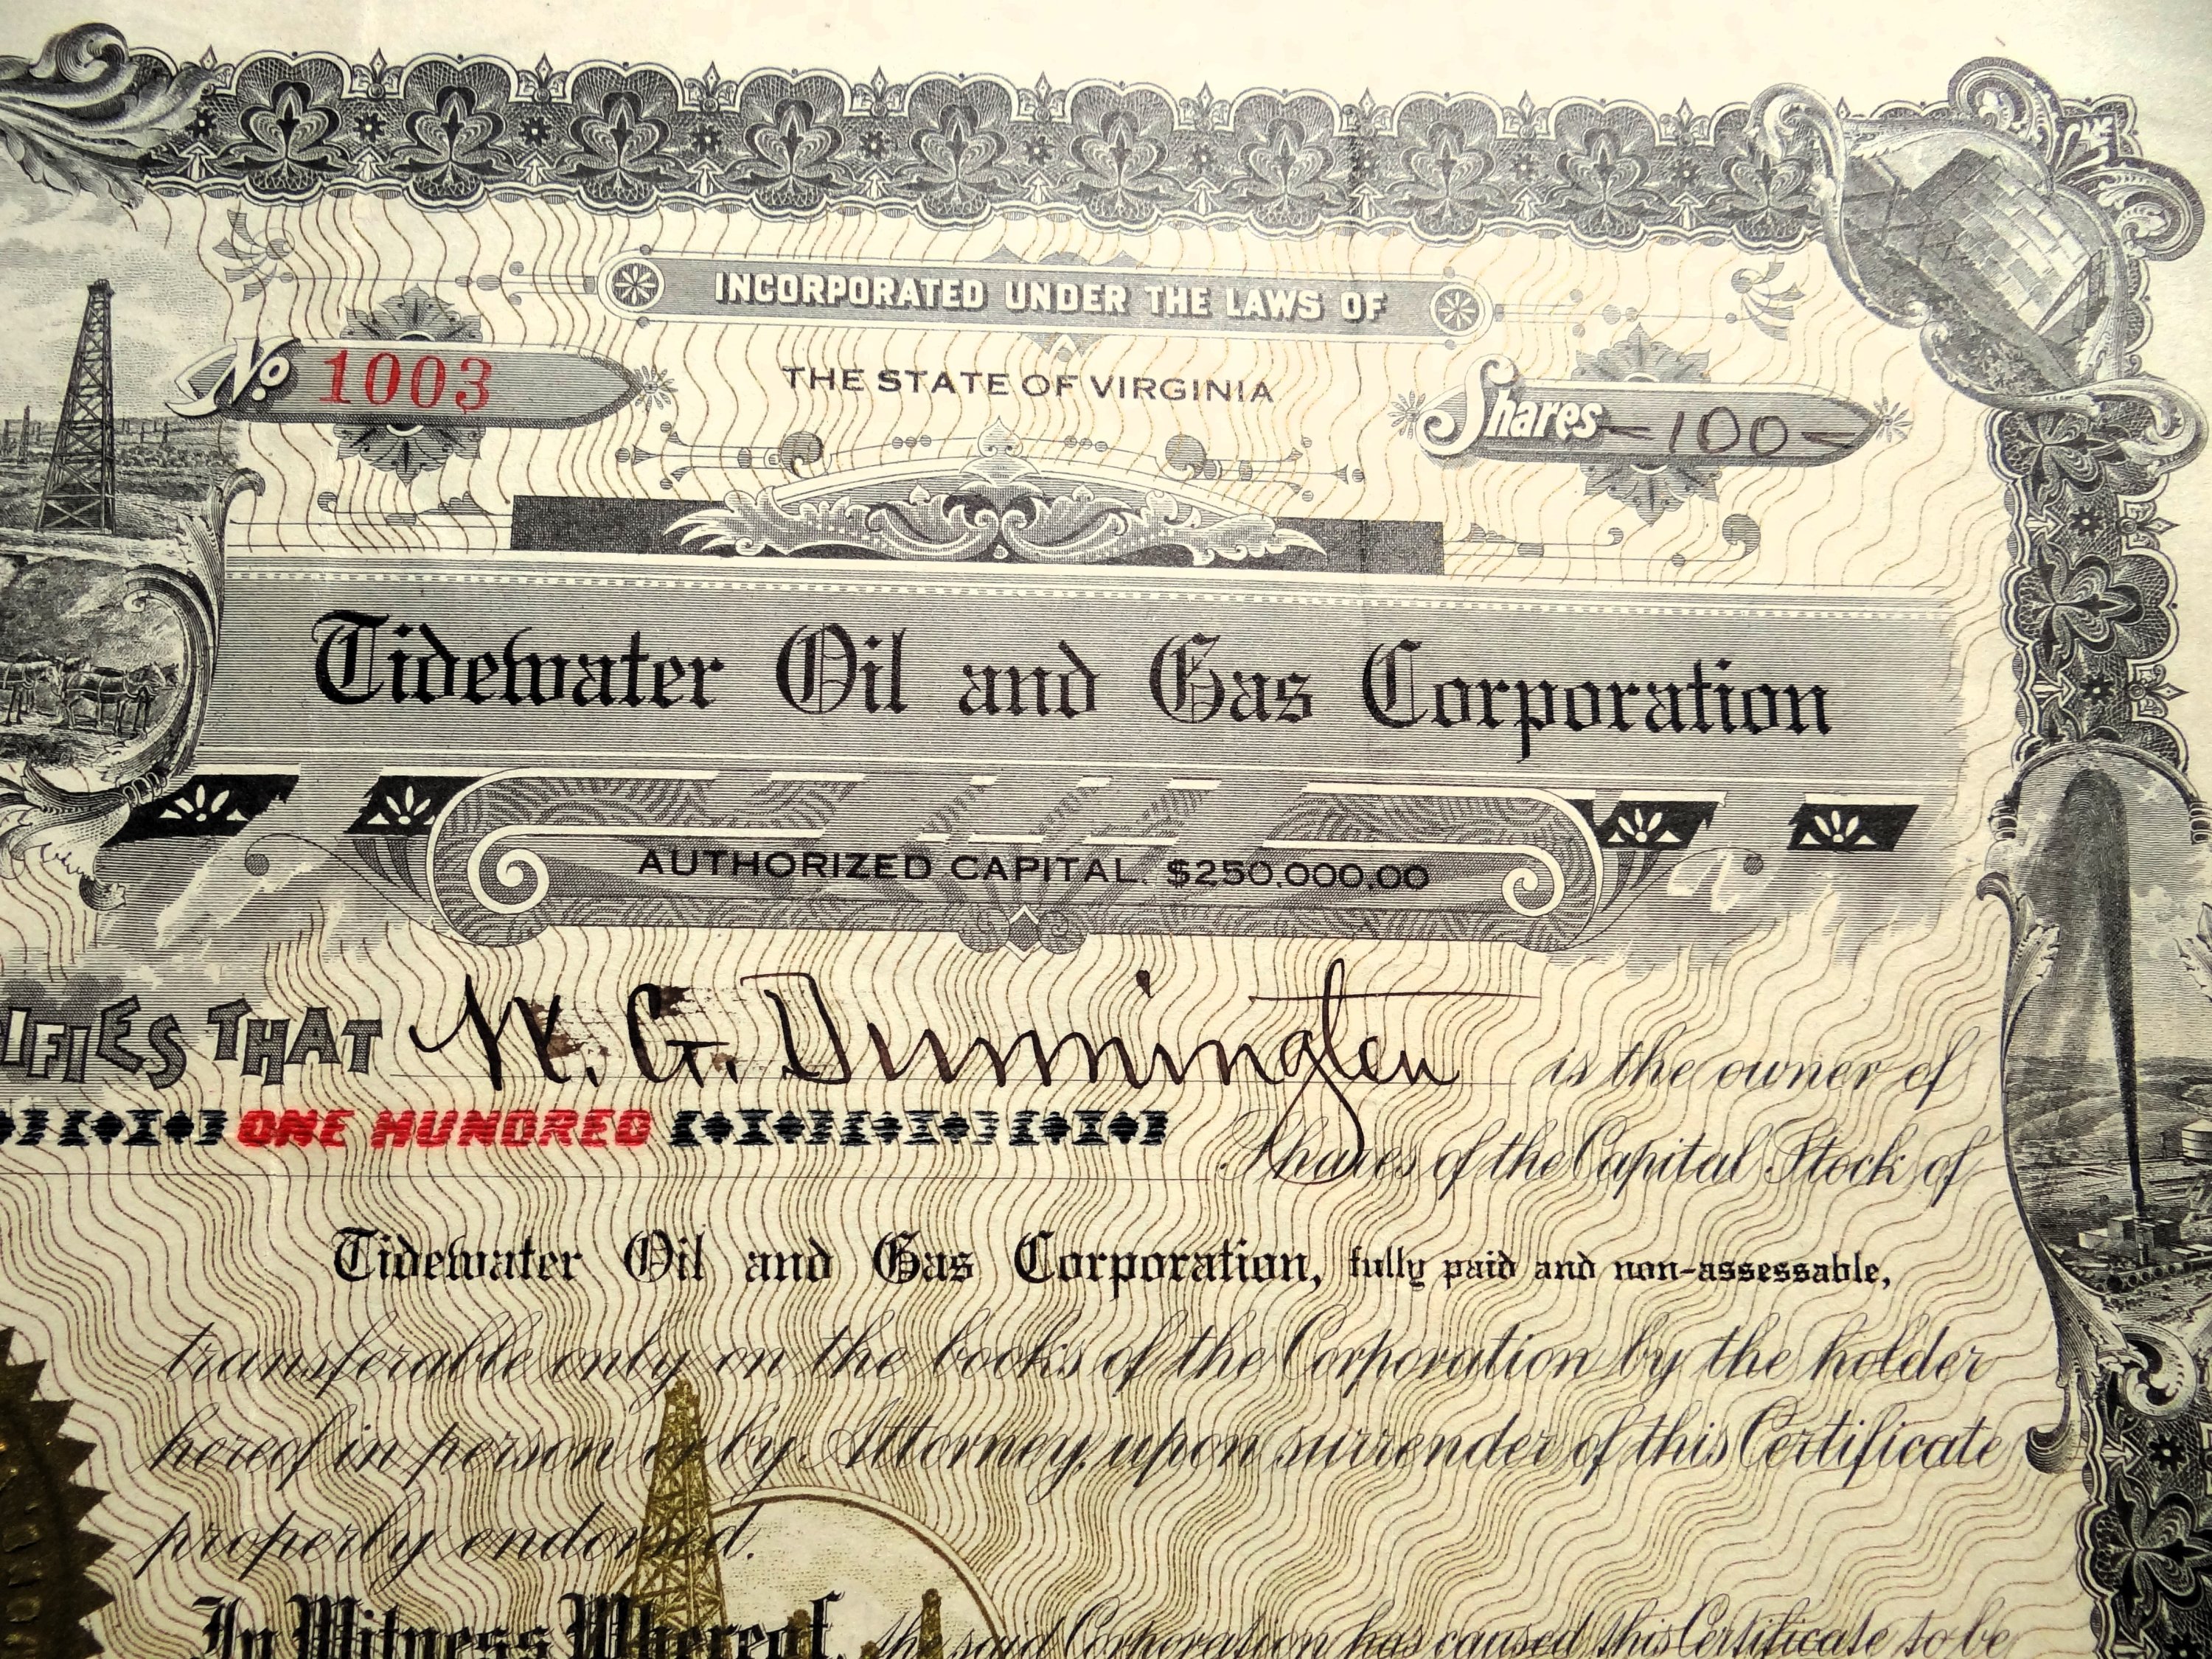 INCORPORATED UNDER THE LAWS OF
No 1003
THE STATE OF VIRGINIA
Shares -100-
Tidewater Oil and Gas Corporation
AUTHORIZED CAPITAL, $250,000.00
IFIES THAT W. G. Dunnington is the owner of
ONE HUNDRED Shares of the Capital Stock of
Tidewater Oil and Gas Corporation, fully paid and non-assessable,
transferable only on the books of the Corporation by the holder
hereof in person or by Attorney, upon surrender of this Certificate
properly endorsed.
In Witness Whereof, the said Corporation has caused this Certificate to be